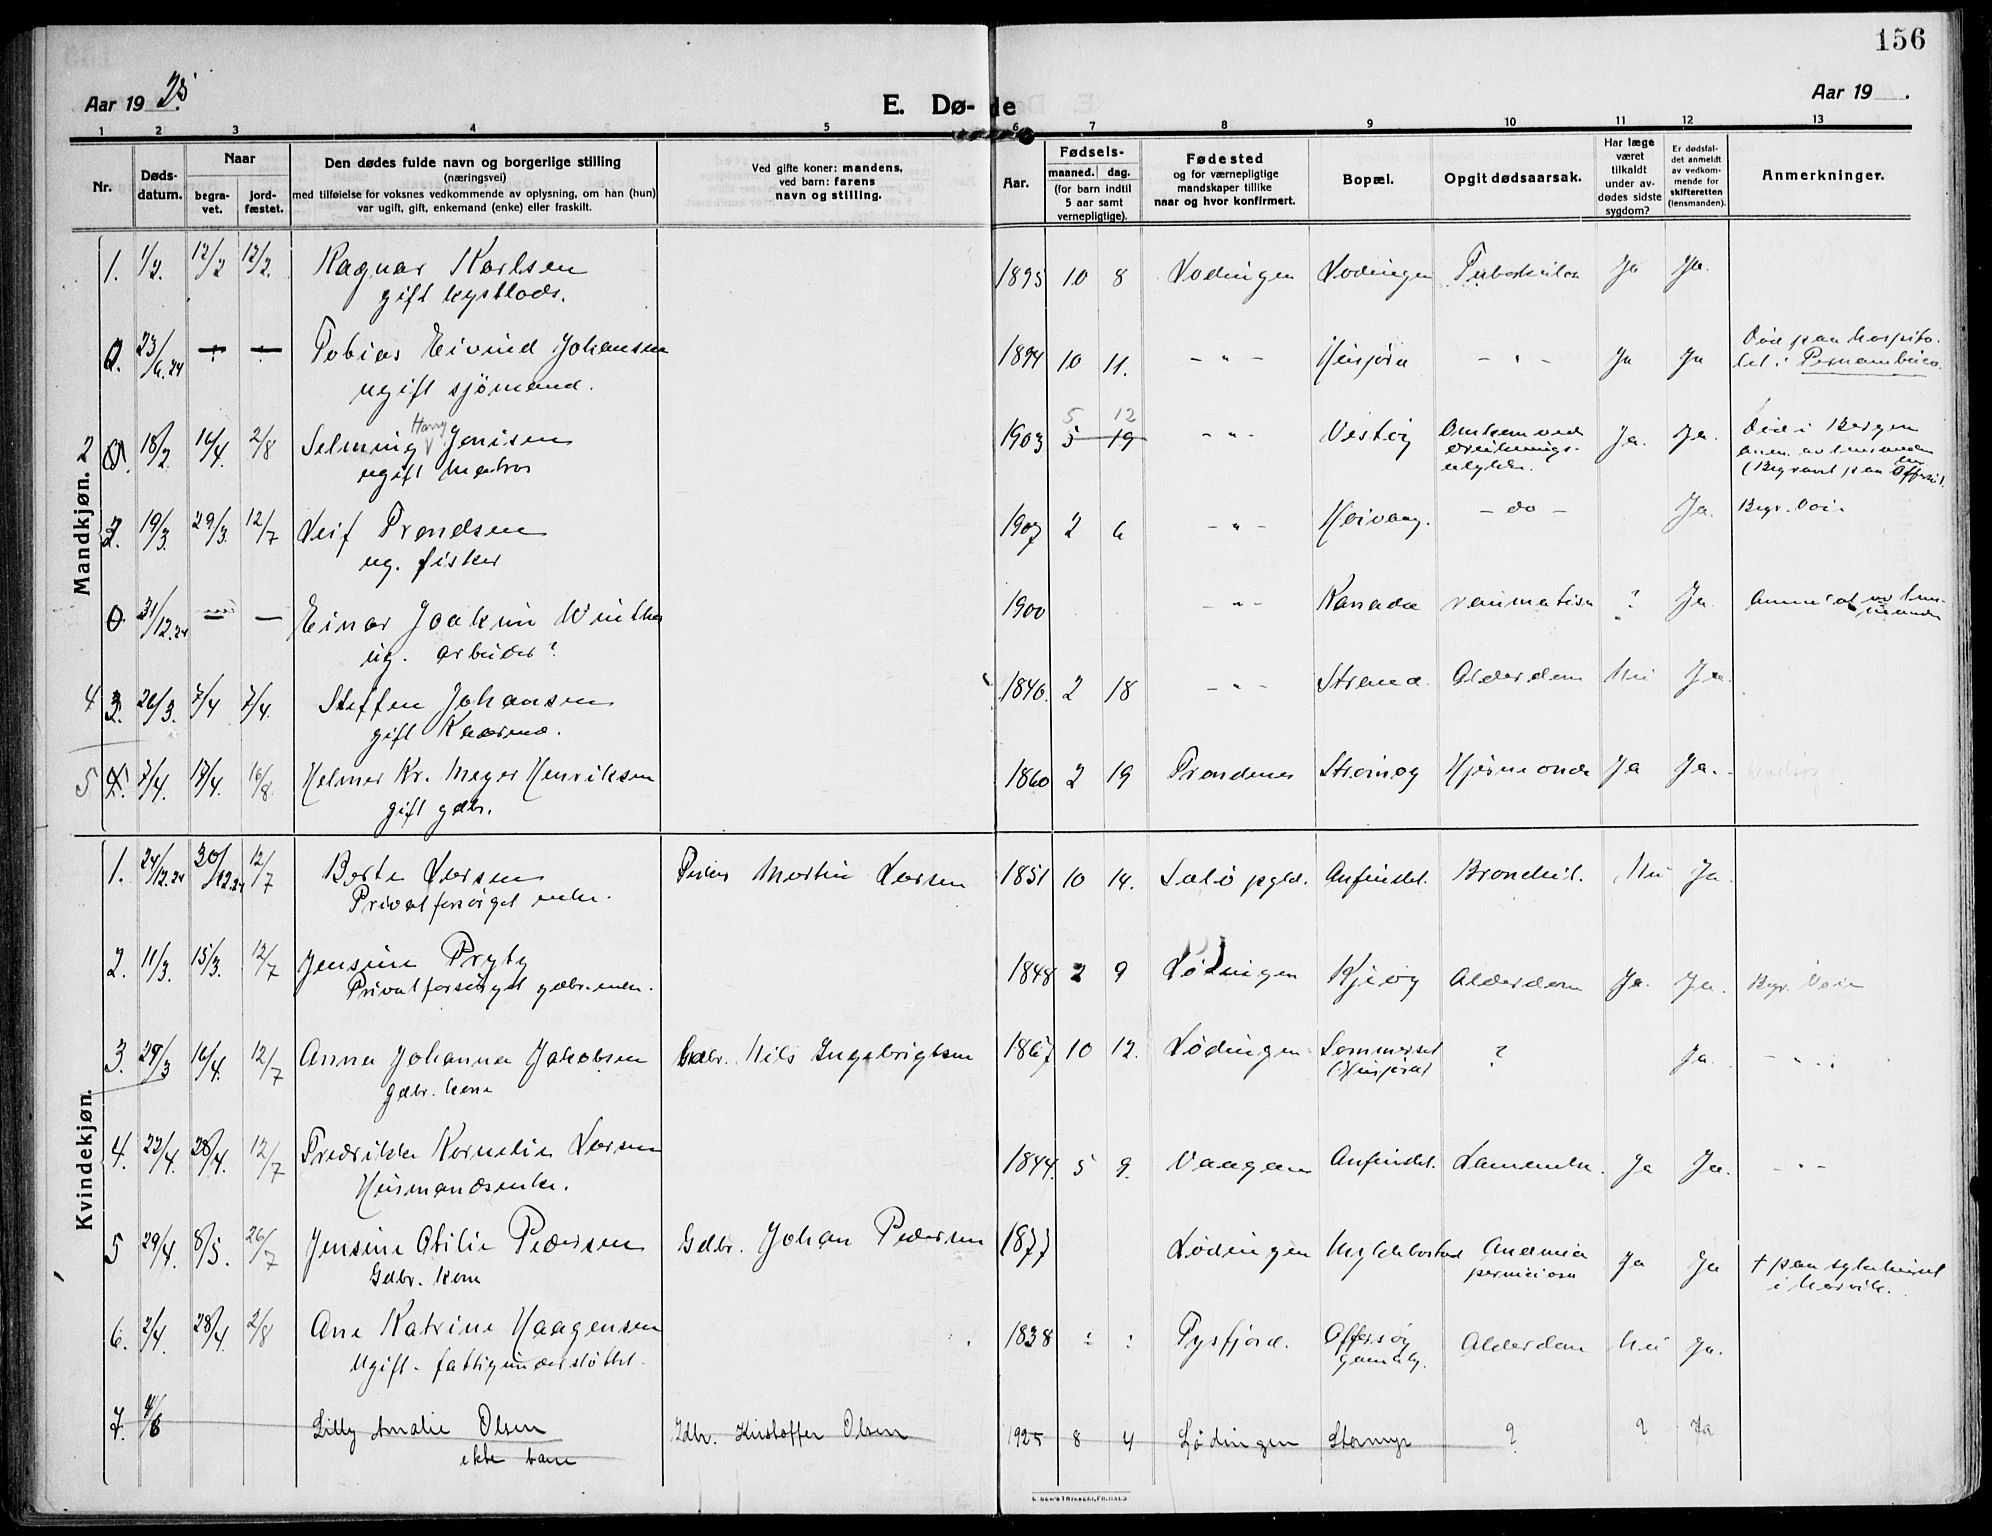 156
Aar 1925.
E. Dø- de
Aar 19 .
1 2 3 4 5 6 7 8 9 10 11 12 13
Nr.
Døds-
datum.
Naar
begra-
vet.
jord-
fæstet.
Den dødes fulde navn og borgerlige stilling
(næringsvei)
med tilføielse for voksnes vedkommende av oplysning, om han (hun)
var ugift, gift, enkemand (enke) eller fraskilt.
Ved gifte koner: mandens,
ved barn: farens
navn og stilling.
Aar.
Fødsels-
maaned. dag.
(for barn indtil
5 aar samt
vernepligtige).
Fødested
og for værnepligtige
mandskaper tillike
naar og hvor konfirmert.
Bopæl.
Opgit dødsaarsak.
Har læge
været
tilkaldt
under av-
dødes sidste
sygdom?
Er dødsfal-
det anmeldt
av vedkom-
mende for
skifteretten
(lensmanden).
Anmerkninger.
Mandkjøn.
1. 1/2. 12/2 12/2. Ragnar Karlsen 1895 10 8 Lødingen Lødingen Tuberkulose Ja Ja.
gift kystlods.
0. 23/6.24 — — Tobias Eivind Johansen 1894 10 11. - " - Husjord - " - Ja Ja Død paa hospita-
ugift sjømand. let i Pernambuco.
2 18/2. 16/4. 2/8 Selmning Harry Jenssen 1903 5 12 5 19 - " - Vestøy Omkom ved Ja. Ja. Død i Bergen
ugift matros drukningsulykke. anm. av lensmanden
(Begravet paa Offersøi.
3. 19/3. 29/3. 12/7 Leif Trondsen 1907 2 6 - " - - do - Ja. Begr. Voie
ug. fisker
0 31/12.24 — — Einar Joakim Winther 1900 - " - Kanada reumatisme ? Ja. Anmeldt av lens-
ug. arbeider? manden
4 3. 26/3. 7/4 7/4. Steffen Johansen 1846. 2 18 - " - Strand. Alderdom Nei Ja.
gift Kaarmd.
5 7/4. 17/4. 16/8. Helmer Kr. Meyer Henriksen 1860 2 19 Trondenes Strømøy Hjerneonde Ja Ja.
gift gdbr.
Kvindekjøn.
1. 24/12.24 30/12.24 12/7 Berte Larsen Peder Martin Larsen 1851 10 14. Salø pgld. Anfindsl. Bronchit. Nei Ja.
Privatforsørget enke.
2. 11/3. 15/3. 12/7 Jensine Pryty 1848 2 9 Lødingen Kjeøy Alderdom Ja. Ja. Begr. Voie
Privatforsørget gdbr.enke.
3. 29/3 16/4. 12/7 Anna Johanna Jakobsen Gdbr. Nils Ingebrigtsen 1867 10 12. Lødingen Sommerset ? Ja. - " -
Gdbr. kone (Husjord)
4. 22/4. 28/4. 12/7 Fredrikke Kornelie Larsen 1844. 5 9. Vaagan Anfindsl. Lammelse. Ja Ja. - " -
Husmandsenke.
5 29/4. 8/5. 26/7 Jensine Otilie Pedersen Gdbr. Johan Pedersen 1877 Lødingen Anæmia Ja Ja + paa sykehuset
Gdbr. kone perniciosa i Narvik.
6. 2/4. 28/4 2/8 Ane Katrine Haagensen 1838 : : Tysfjord. Offersøy Alderdom Nei Ja.
Ugift. fattigunderstøttet. gamleg.
7. 4/8 Lilly Amalie Olsen Gdbr. Kristoffer Olsen 1925 8 4 Lødingen Stormyr ? ? Ja
ekte barn